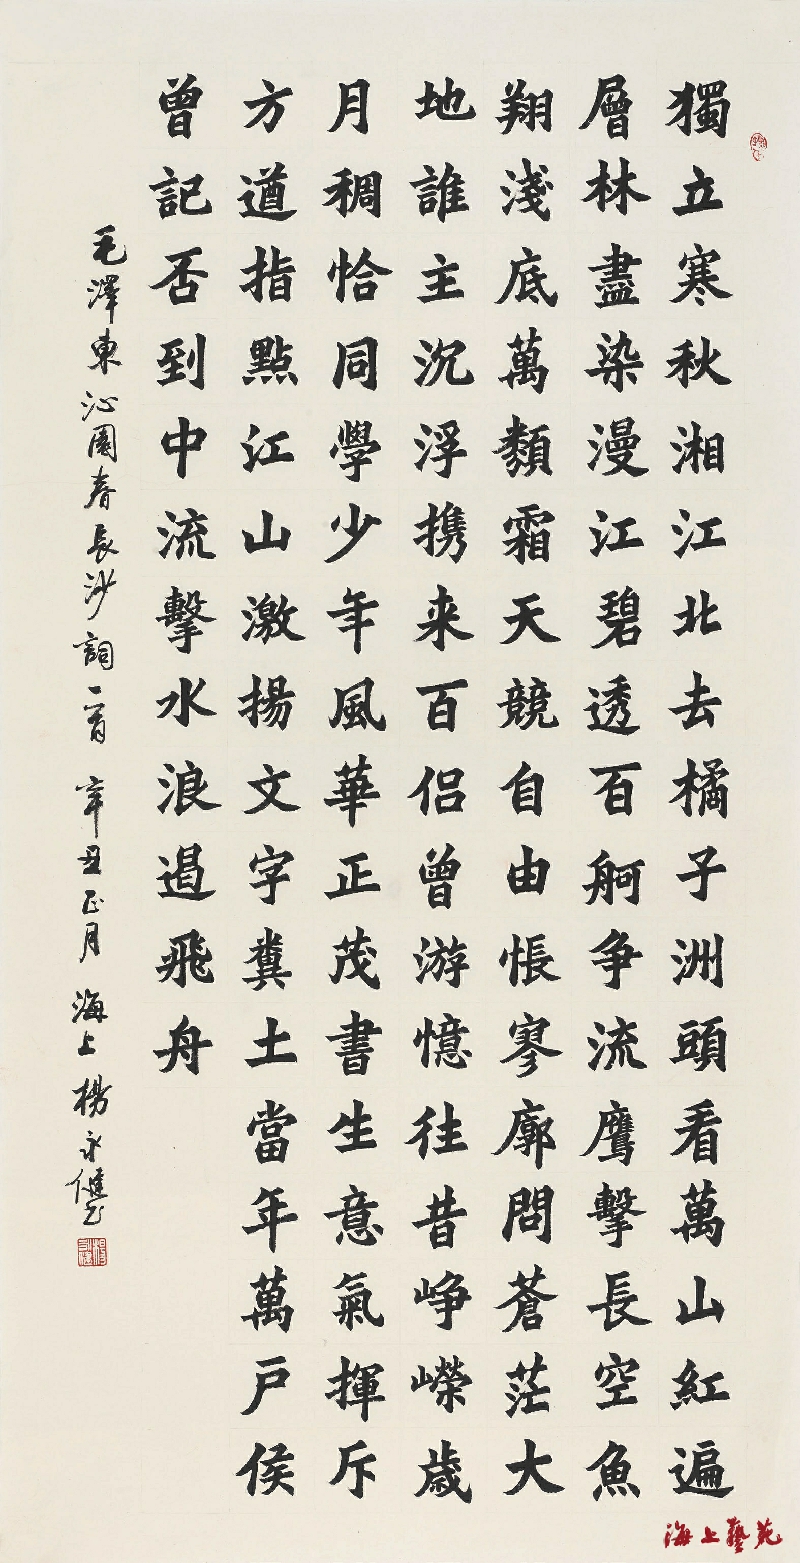 獨立寒秋湘江北去橘子洲頭看萬山紅遍
層林盡染漫江碧透百舸争流鷹擊長空魚
翔淺底萬類霜天競自由悵寥廓問蒼茫大
地誰主沉浮携来百侣曾游憶往昔峥嶸歲
月稠恰同學少年風華正茂書生意氣揮斥
方遒指點江山激揚文字糞土當年萬户侯
曾記否到中流擊水浪遏飛舟
毛澤東沁園春長沙詞一首 辛丑正月 海上楊永健
海上藝苑